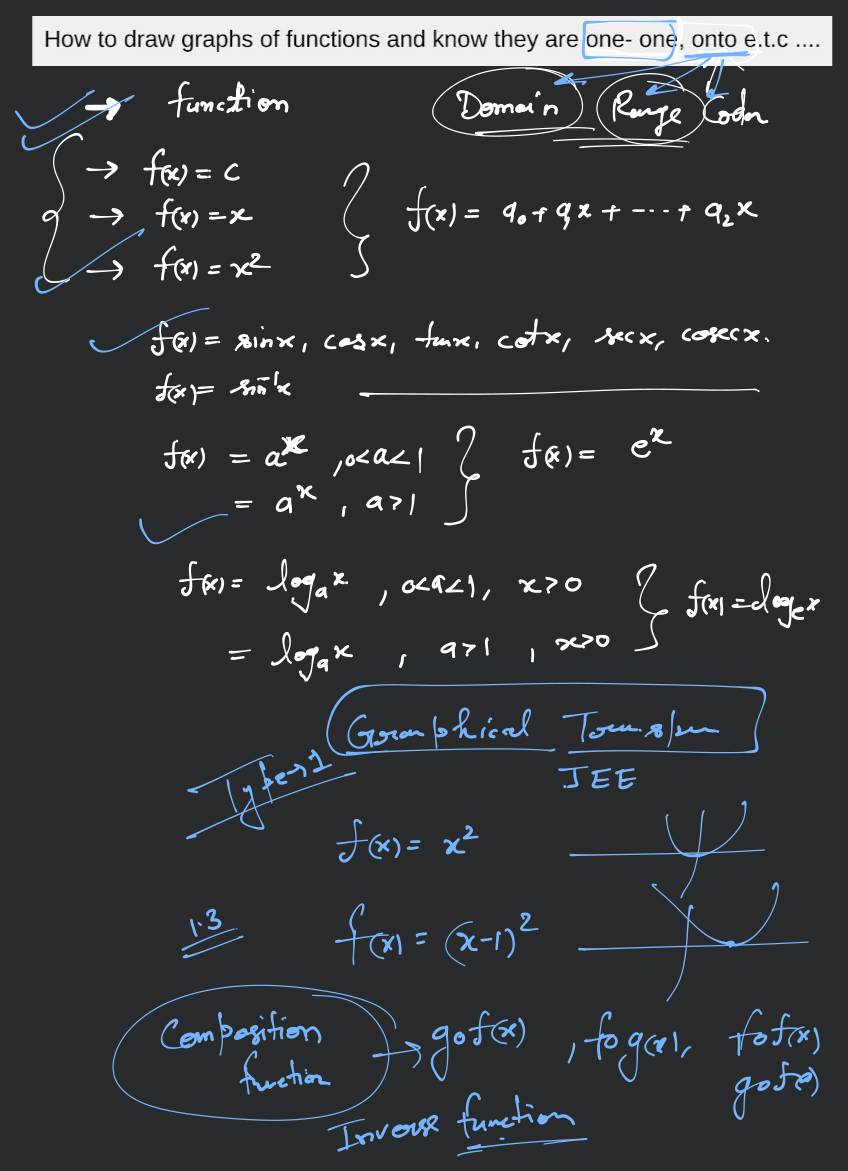 How to draw graphs of functions and know they are one- one, onto e.t.c ....
→ function Domain Range Codm
→ f(x) = c
→ f(x) = x f(x) = a₀ + a₁x + ---- + a₂x
→ f(x) = x²
f(x) = sinx, cosx, tanx, cotx, secx, cosecx.
f(x) = sin⁻¹x
f(x) = aˣ, 0<a<1 f(x) = eˣ
= aˣ, a>1
f(x) = logₐx, 0<a<1, x>0 f(x) = logₑx
= logₐx, a>1, x>0
Graphical Transfm
Type→1 JEE
f(x) = x²
1.3 f(x) = (x-1)²
Composition function → gof(x), fog(x), fof(x)
gof(x)
Inverse function